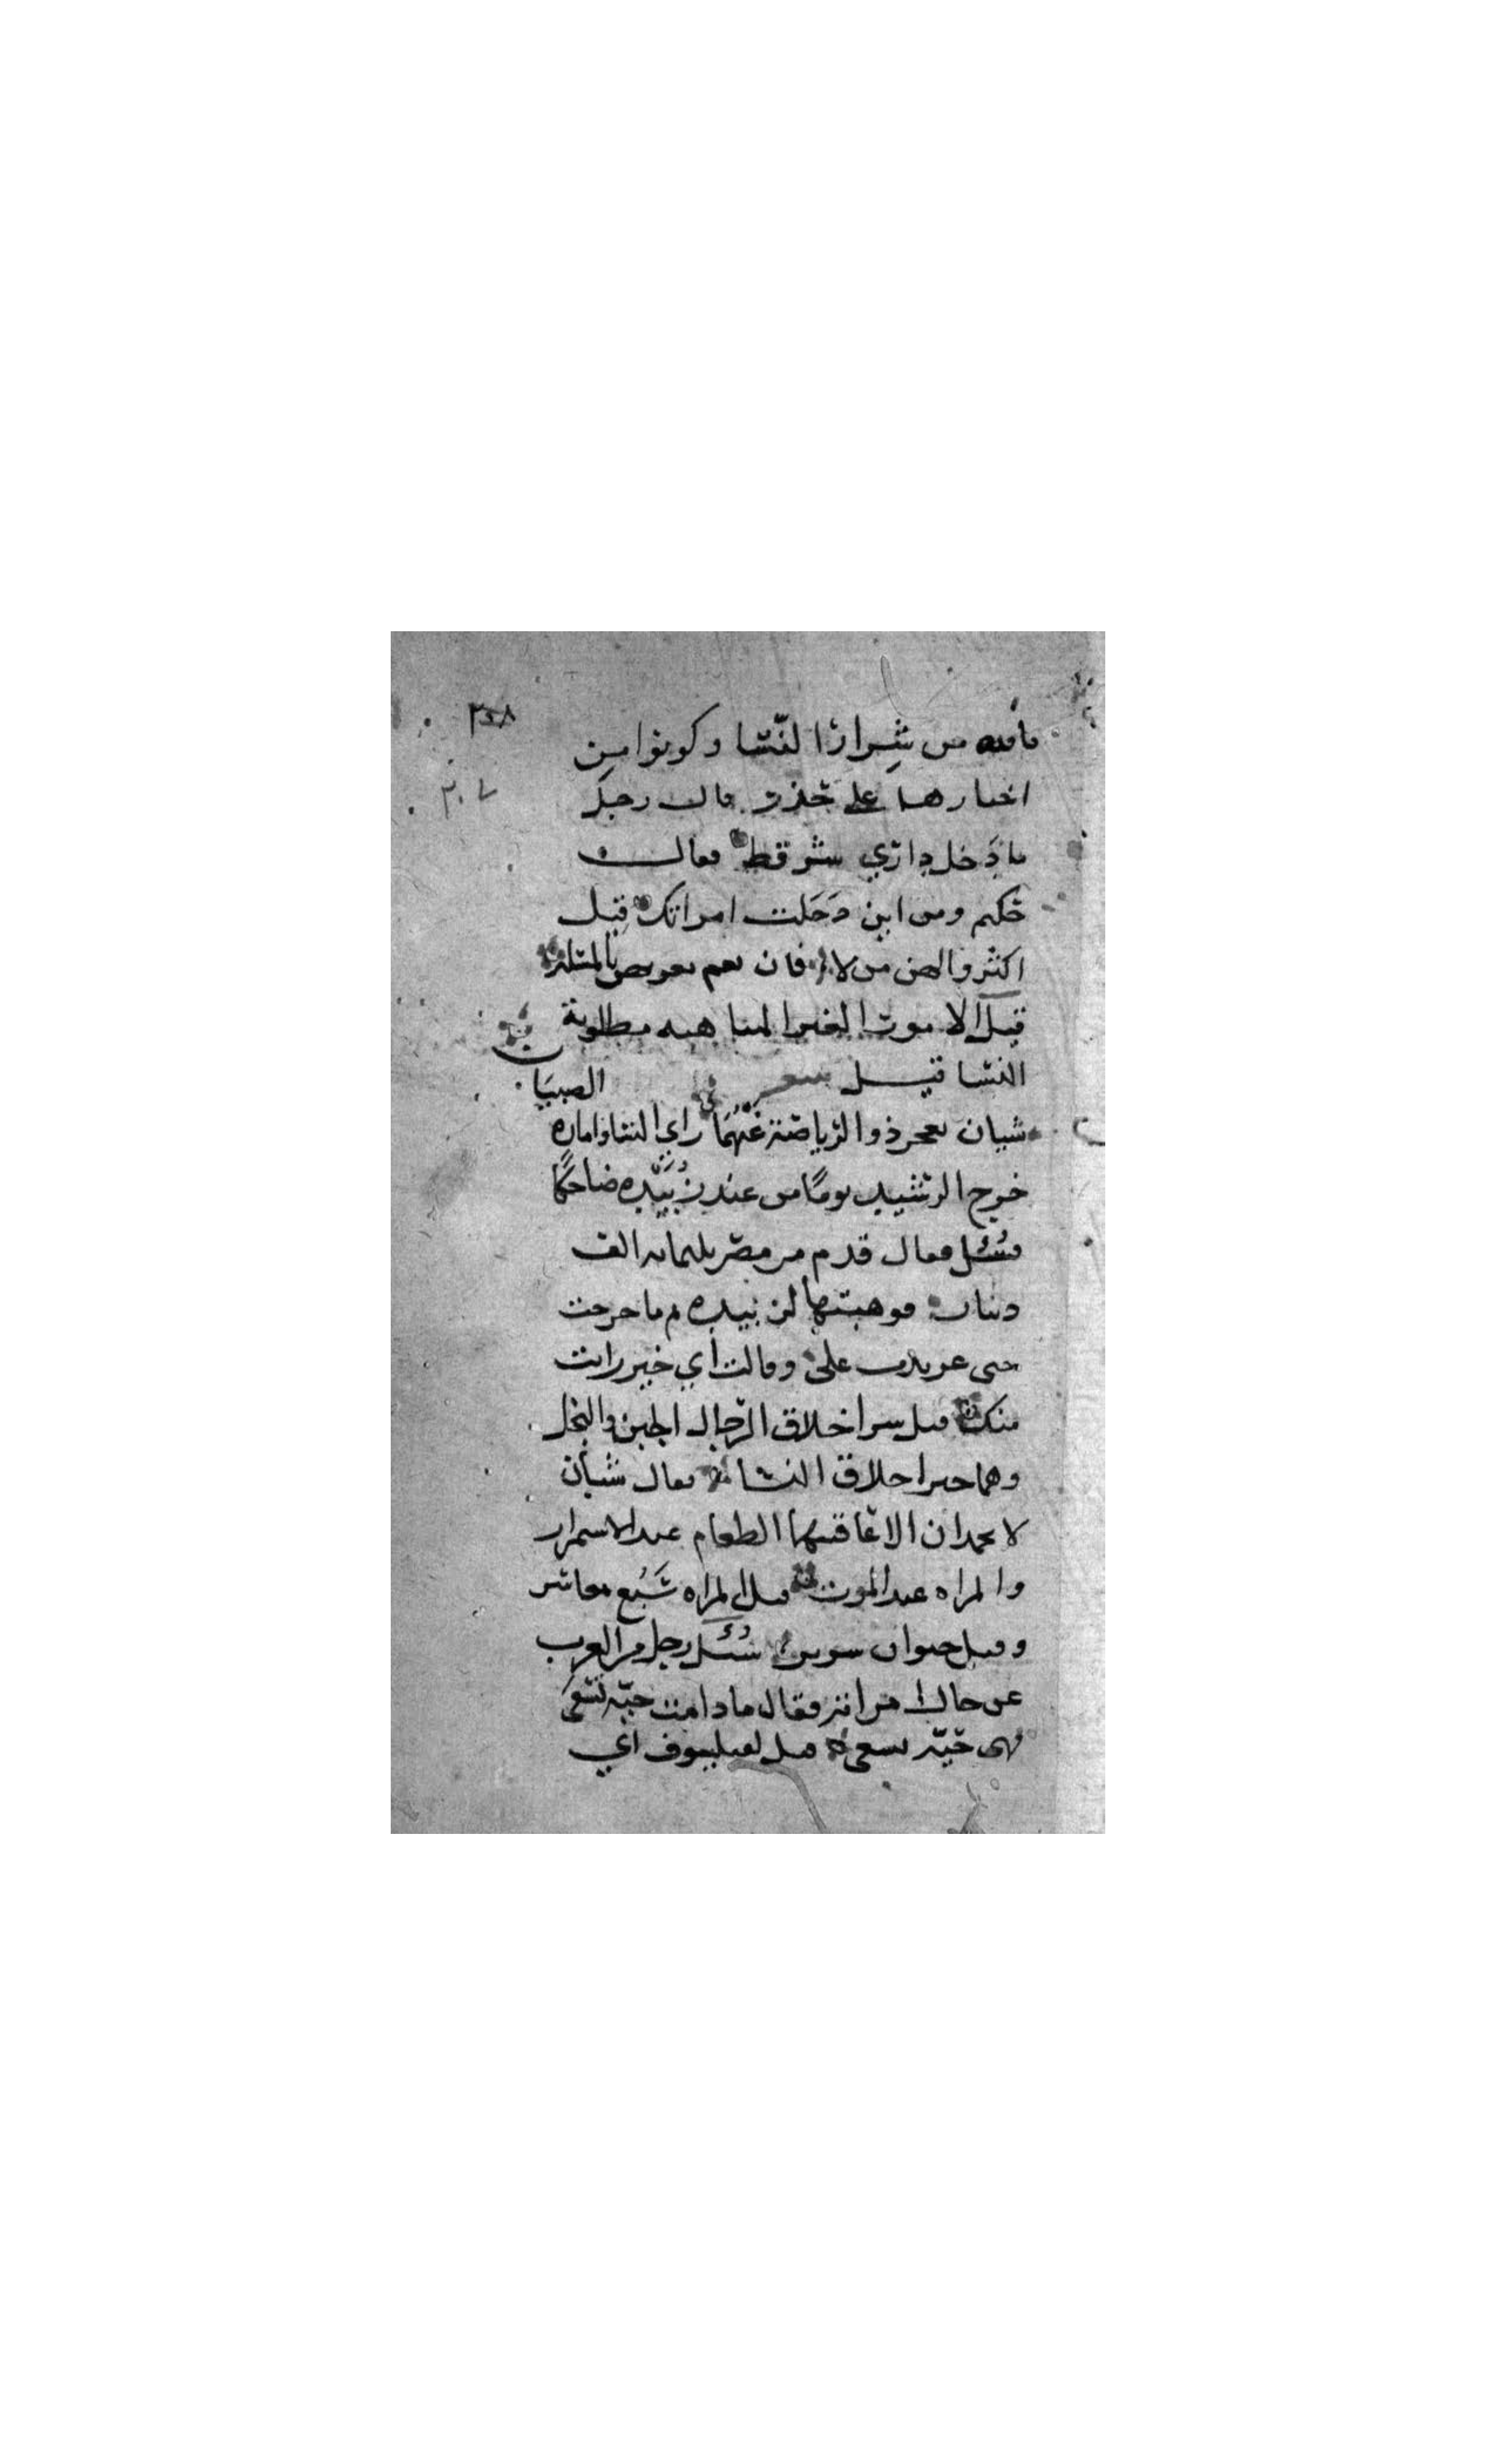 ٣٠٨
بالله من شرار النسا وكونوا من
٣٠٧
خيارهن على حذر قال رجل
ما دخل داري شر قط فقال
حكيم ومن اين دخلت امراتك قيل
اكثروا لهن من لا فان نعم
قيل الا موت
النسا قيل شعر
شيان يعجز ذو الرياضة عنهما راي النسا وامارة الصبيان
خرج الرشيد يوما من عند زُبَيْده ضاحكا
فسُئل فقال قدم من مصر ثلثمايه الف
دينار فوهبتها لزبيده فما خرجت
حتى عربدت علي وقالت أي خير رايت
منك قيل شر اخلاق الرجال الجبن والبخل
وهما خير اخلاق النسا يقال شيان
لا يحمدان الا عاقبتهما الطعام عند الاستمرار
والمراه عند الموت قيل المراه سَبُع معاشر
وقيل حيوان سُئل رجل من العرب
عن حال امراته فقال ما دامت حيّه تسعى
فهى حيّه تسعى قيل لفيلسوف أي